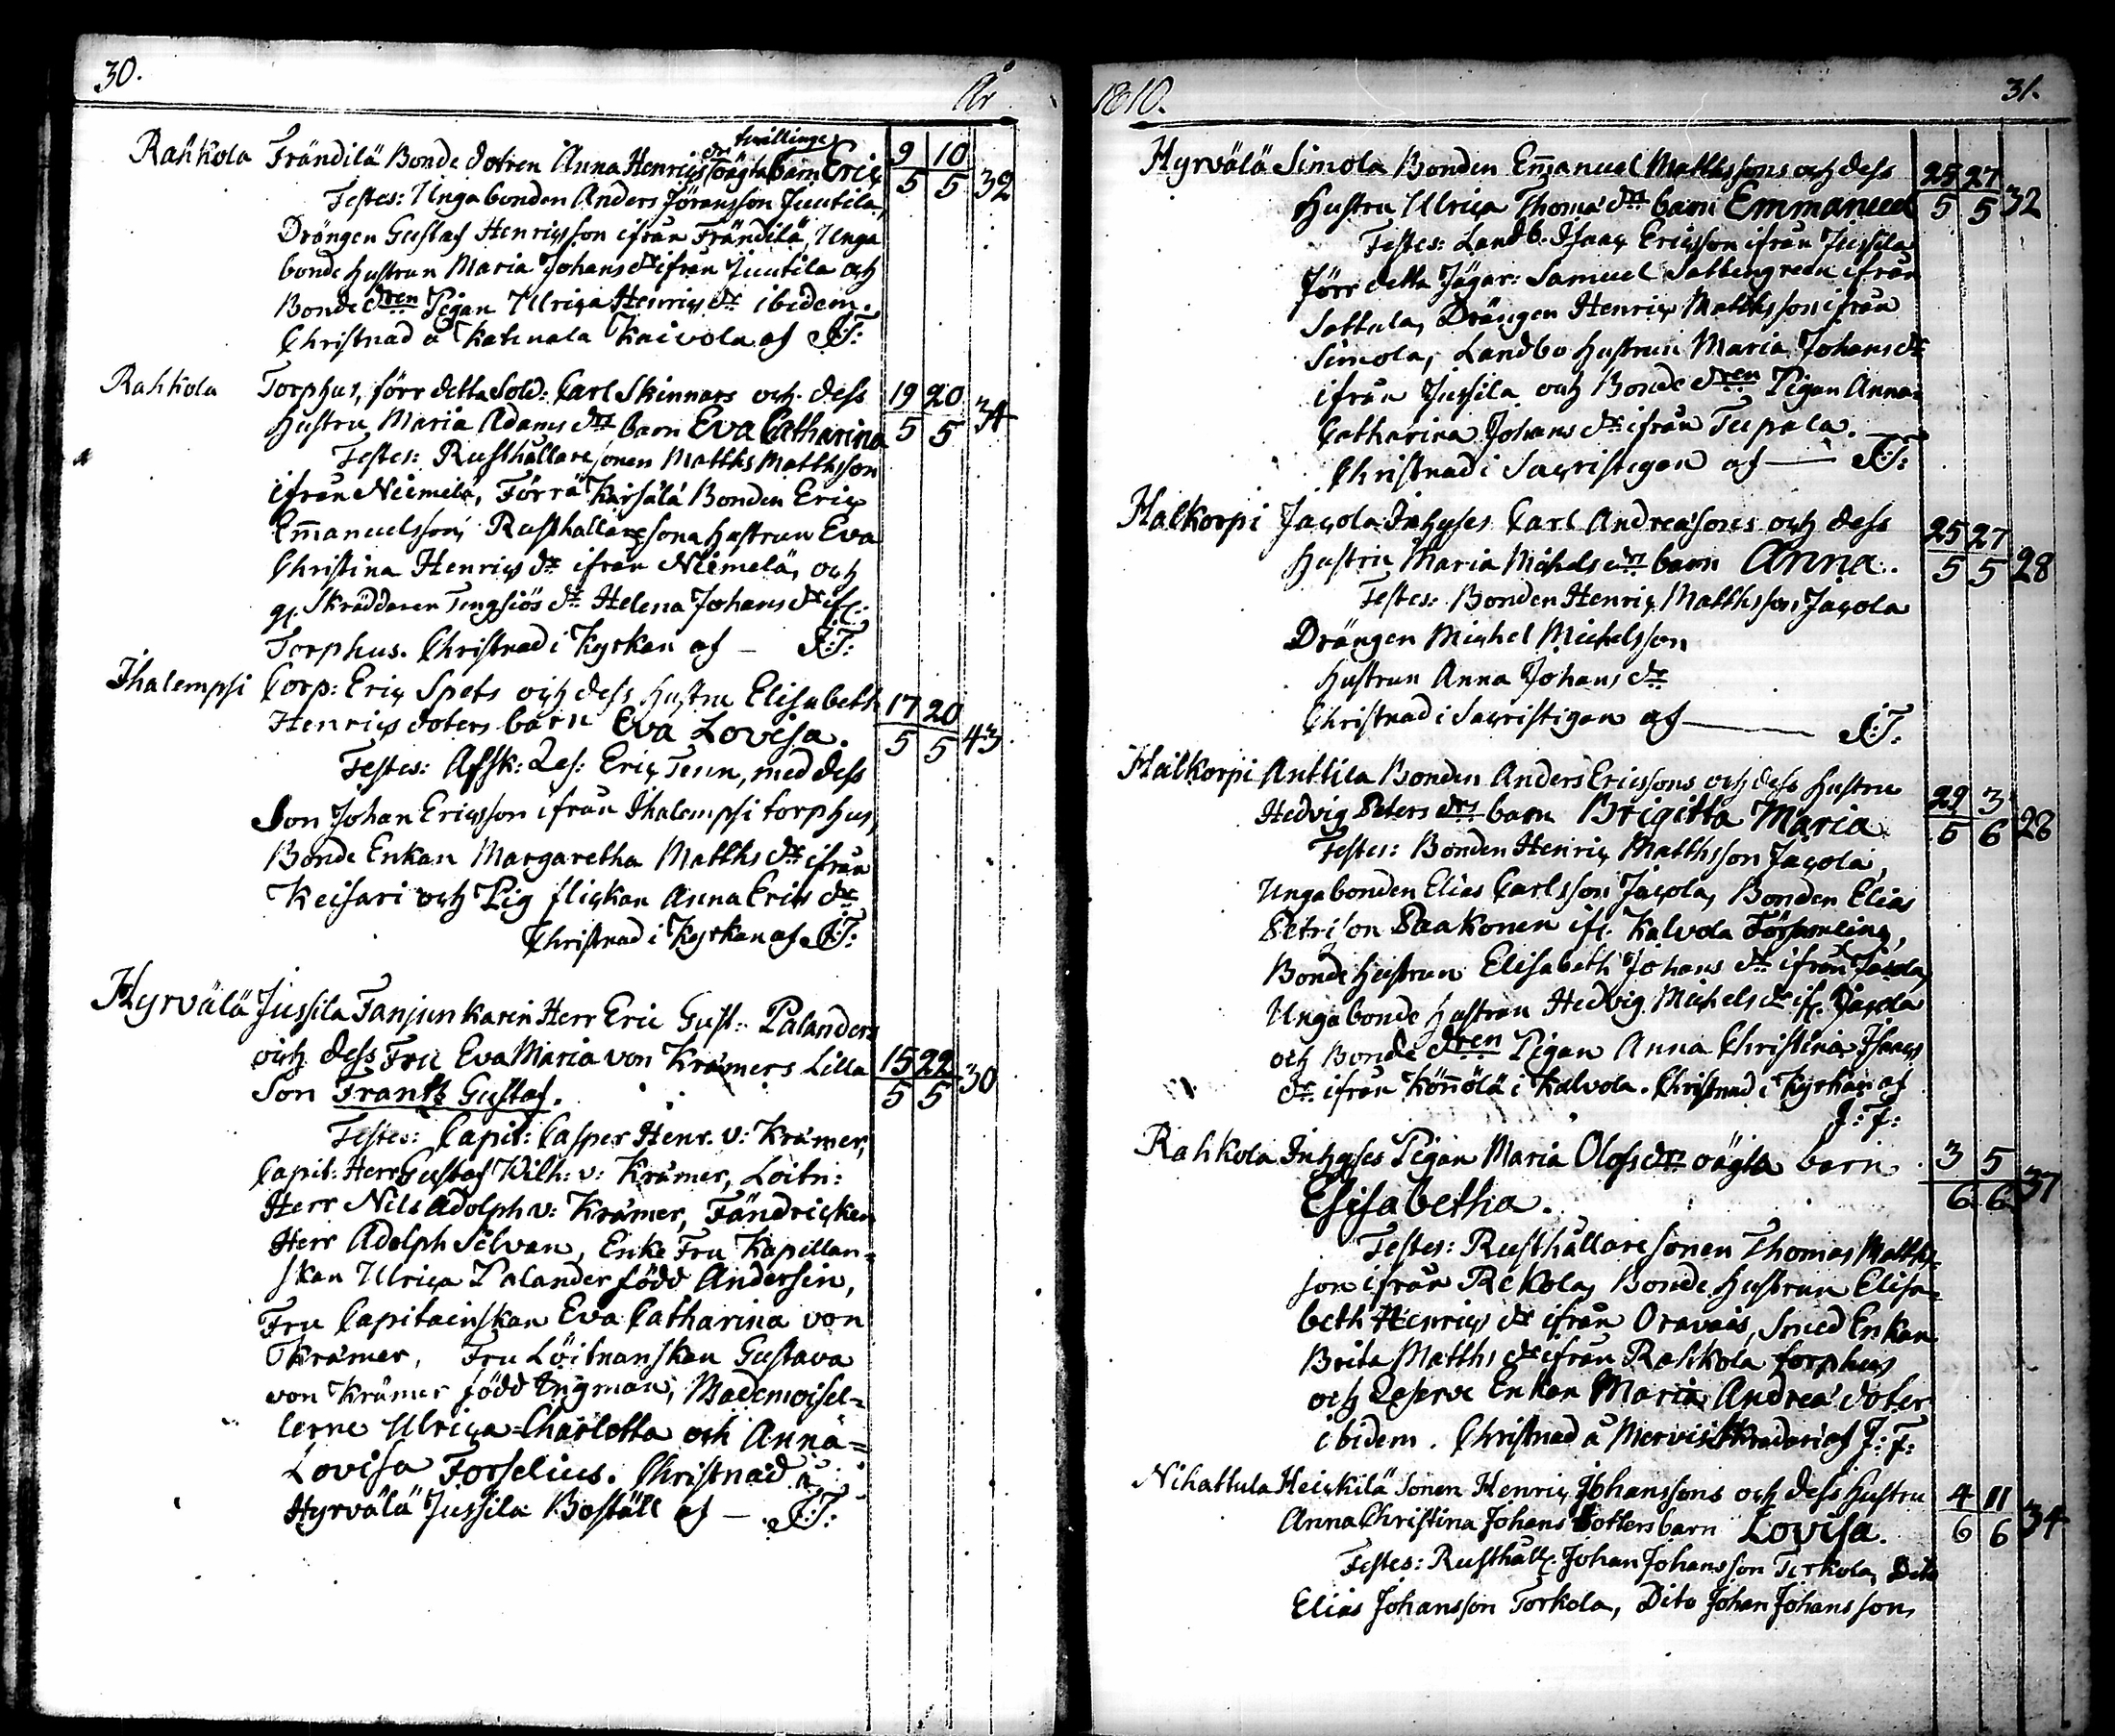 30.
År
Rahkola Frändilä Bonde dotren Anna Henrics dri twillinge oägta barn Eric 9/5 10/5 32
Testes: Unga bonden Anders Jöransson Juutila,
Drängen Gustaf Henricsson ifrån Frändilä, Unga
bonde hustrun Maria Johans dr ifrån Juutila och
Bonde dren Pigan Ulrica Henrics dr ibidem.
Christnad å Katinala Kaivola af J:T:
Rahkola Torphus, förr detta Sold: Carl Skinnars och dess 19/5 20/5 34
hustru Maria Adams drs barn Eva Catharina
Testes: Rusthållare sonen Matths Matthsson
ifrån Niemelä, Förra Karsälä Bonden Eric
Emanuelsson, Rusthållaresona hustrun Eva
Christina Henrics dr ifrån Niemelä, och
gl. Skräddaren Tengsiös dr Helena Johans dr ifr.
Torphus. Christnad i Kyrkan af — J:T:
Ihalempsi Corp: Eric Spets och dess hustru Elisabeth 17/5 20/5 43
Henrics doters barn Eva Lovisa.
Testes: Afsk: Res: Eric Tenn, med dess
Son Johan Ericsson ifrån Ihalempsi torphus,
Bonde Enkan Margaretha Matths dr ifrån
Keisari och Pig flickan Anna Erics dr
Christnad i Kyrkan af J:T:
Hyrvälä Jussila Fanjunkarin Herr Eric Gust: Palanders
och dess Fru Eva Maria von Kræmers Lilla 15/5 22/5 30
Son Frantz Gustaf.
Testes: Capit: Casper Henr. v: Kræmer,
Capit: Herr Gustaf Wilh: v: Kræmer, Loitn:
Herr Nils Adolph v: Kræmer, Fändricken
Herr Adolph Silvan, Enke Fru Kapellan=
skan Ulrica Palander född Andersin,
Fru Capitainskan Eva Catharina von
Kræmer, Fru Löitnanskan Gustava
von Kræmer född Ingman, Mademoisel=
lerne Ulrica Charlotta och Anna=
Lovisa Forselius. Christnad å
Hyrvälä Jussila Boställ af — J:T:
1810.
31.
Hyrvälä Simola Bonden Emanuel Matthssons och dess 25/5 27/5 32
hustru Ulrica Thomæ drs barn Emmanuel
Testes: Landb. Isaac Ericsson ifrån Jussila
förr detta Jägar: Samuel Sattengreen ifrån
Sattula, Drängen Henric Matthsson ifrån
Simola, Landbo hustrun Maria Johans dr
ifrån Jussila och Bonde dren Pigan Anna
Catharina Johans dr ifrån Tupala.
Christnad i Sacristigan af — J:T:
Halkorpi Jacola Inhyses Carl Andreæsons och dess 25/5 27/5 28
hustru Maria Michels drs barn Anna.
Testes: Bonden Henric Matthsson Jacola
Drängen Michel Michelsson
Hustrun Anna Johans dr
Christnad i Sacristigan af — J:T:
Halkorpi Anttila Bonden Anders Ericssons och dess hustru
Hedvig Peters drs barn Brigitta Maria 29/5 3/6 28
Testes: Bonden Henric Matthsson Jacola,
Ungabonden Elias Carlsson Jacola, Bonden Elias
Petrison Paakonen ifr. Kalvola Församling,
Bonde hustrun Elisabeth Johans dr ifrån Jacola,
Ungabonde hustrun Hedvig Michels dr ifr. Jacola
och Bonde dren Pigan Anna Christina Isaacs
dr ifrån Könnölä i Kalvola. Christnad i Kyrkan af
J:T:
Rahkola Inhyses Pigan Maria Olofs drs oägta barn 3/6 5/6 37
Elisabetha.
Testes: Rusthållare sonen Thomas Matths=
son ifrån Rekola, Bonde hustrun Elisa=
beth Henrics dr ifrån Oravais, Smed Enkan
Brita Matths dr ifrån Rahkola torphus
och Reserve Enkan Maria Andreæ doter
ibidem. Christnad å Mervis Skraderi af J:T:
Nihattula Heickilä Sonen Henric Johanssons och dess hustru 4/6 11/6 34
Anna Christina Johans dotters barn Lovisa.
Testes: Rusthåll. Johan Johansson Torkola, Dito
Elias Johansson Torkola, Dito Johan Johansson,